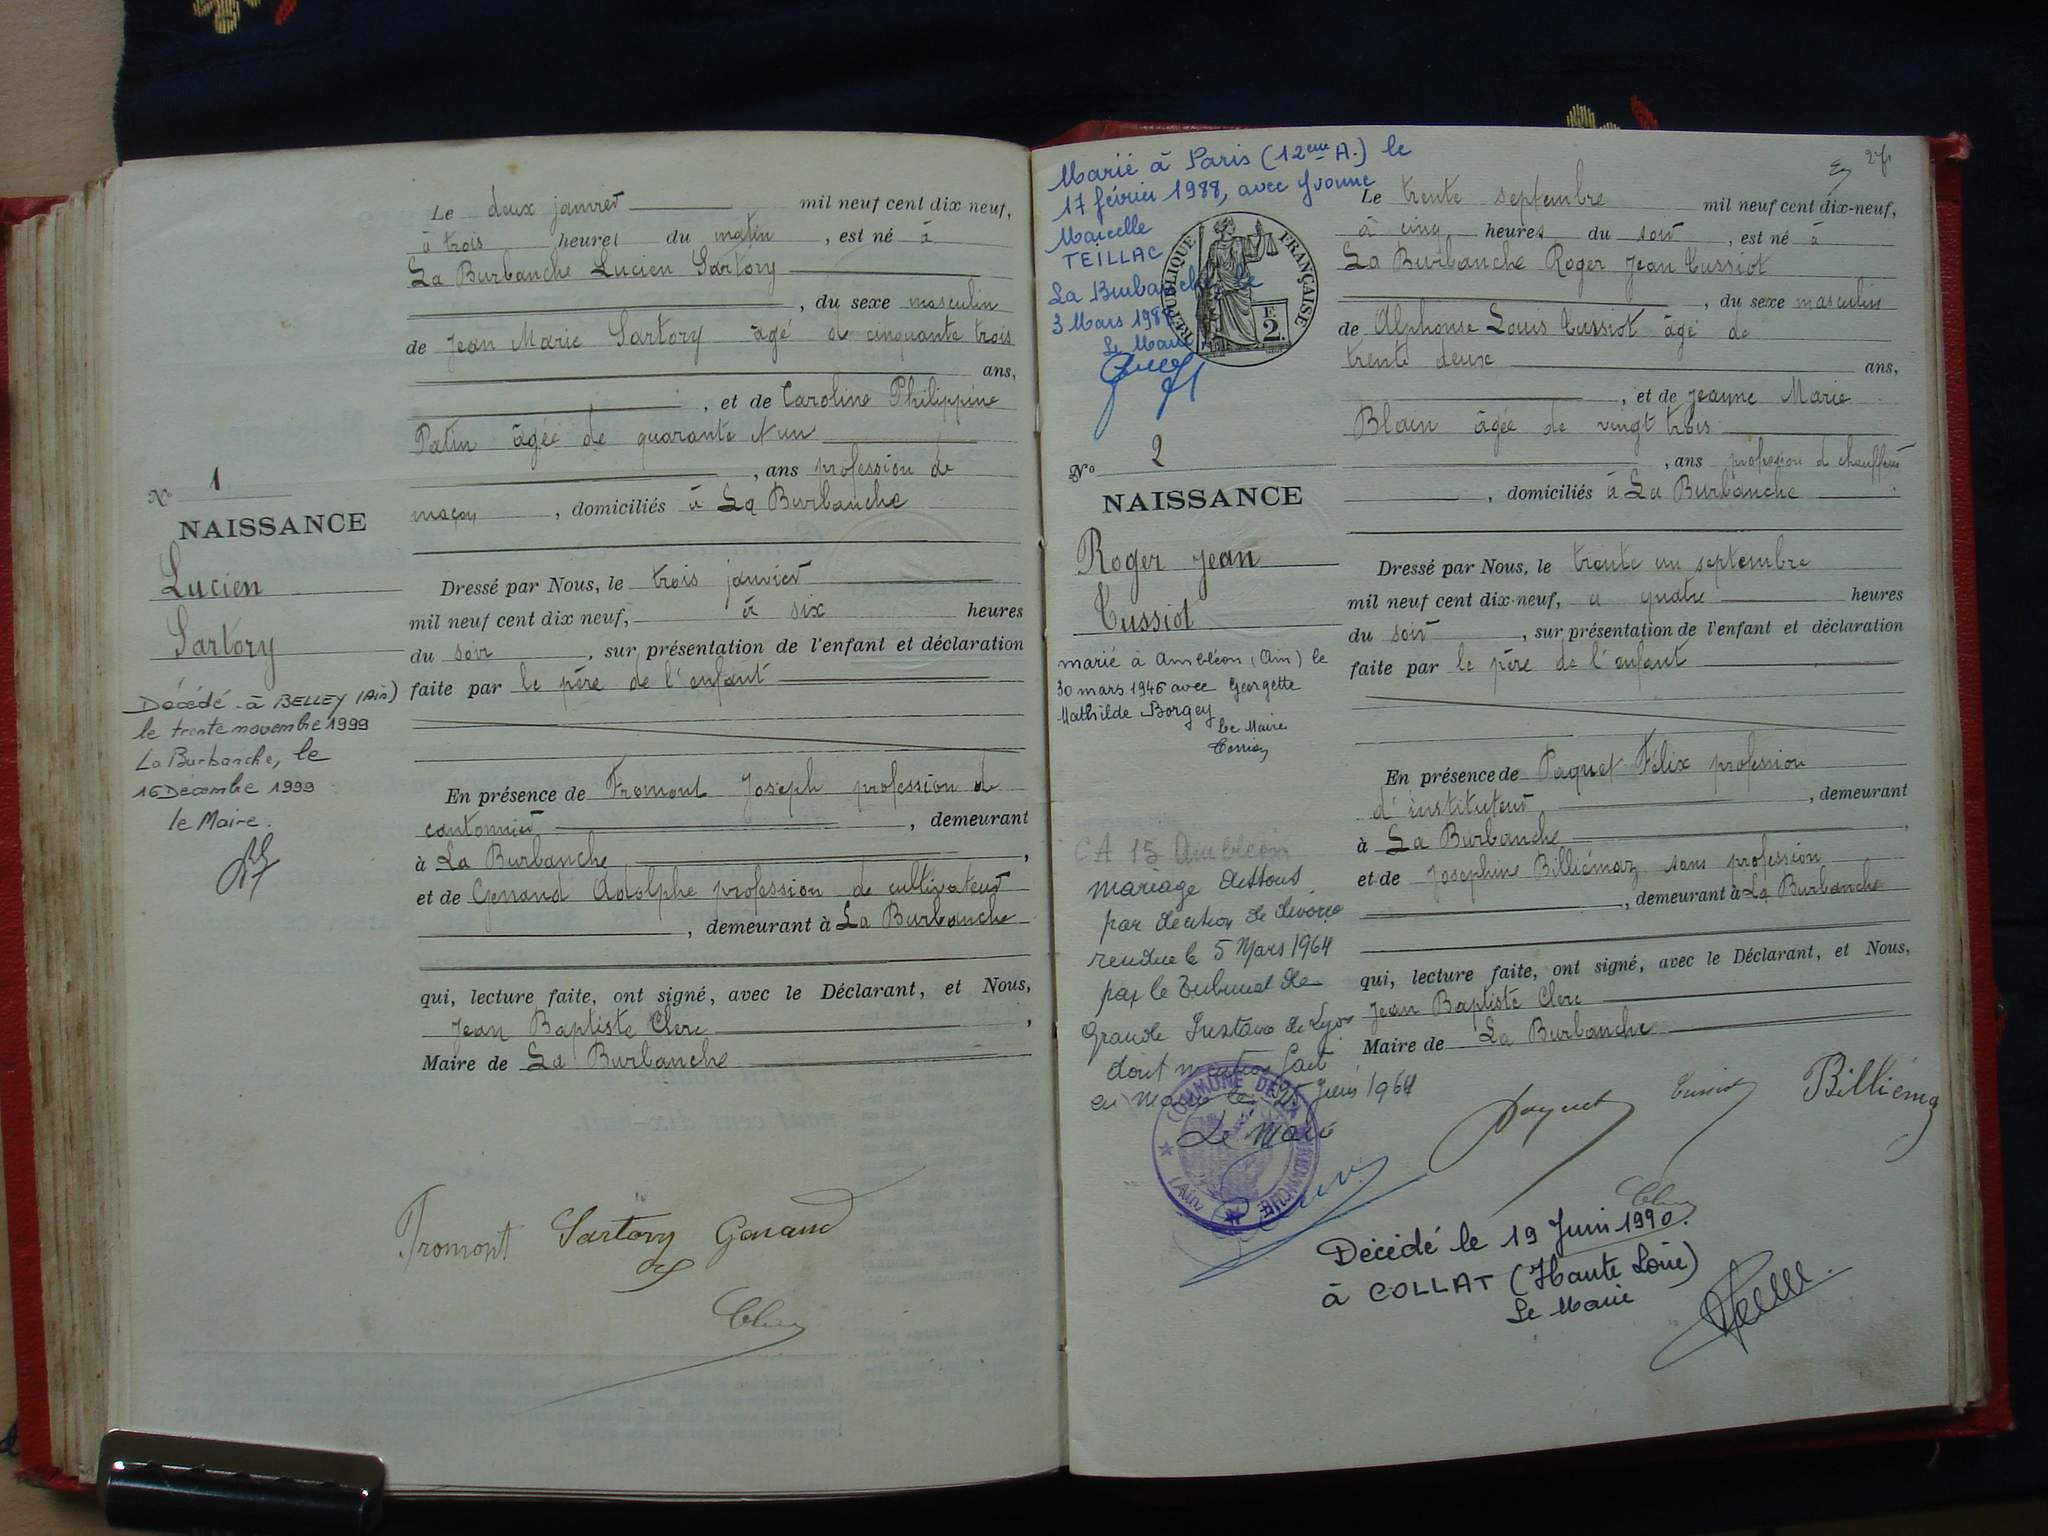 Le deux janvier mil neuf cent dix-neuf,
à trois heures du matin, est né à
La Burbanche Lucien Sartory
, du sexe masculin
de Jean Marie Sartory âgé de cinquante trois
ans,
, et de Caroline Philippine
Patin âgée de quarante et un
, ans profession de
maçon, domiciliés à La Burbanche
N° 1
NAISSANCE
Lucien
Sartory
Décédé à BELLEY (Ain)
le trente novembre 1999
La Burbanche, le
16 Décembre 1999
le Maire.
Dressé par Nous, le trois janvier
mil neuf cent dix neuf, à six heures
du soir, sur présentation de l'enfant et déclaration
faite par le père de l'enfant
En présence de Fromont Joseph profession de
cantonnier, demeurant
à La Burbanche,
et de Genand Adolphe profession de cultivateur
, demeurant à La Burbanche
qui, lecture faite, ont signé, avec le Déclarant, et Nous,
Jean Baptiste Clerc,
Maire de La Burbanche
Fromont Sartory Genand
Clerc
Marié à Paris (12eme A.) le
17 février 1988, avec Yvonne
Marcelle
TEILLAC
La Burbanche, le
3 Mars 1988
Le Maire
RÉPUBLIQUE FRANÇAISE
F
2.
N° 2
NAISSANCE
Roger Jean
Cussiot
marié à Ambléon (Ain) le
30 mars 1946 avec Georgette
Mathilde Borgey
Le Maire
CA 15 Ambléon
mariage dessous
par décision de divorce
rendue le 5 Mars 1964
par le Tribunal de
Grande Instance de Lyon
dont mention fait
en Mairie le 25 Juin 1964
Le Maire
COMMUNE DE LA BURBANCHE
(Ain)
Le trente septembre mil neuf cent dix-neuf,
à cinq heures du soir, est né à
La Burbanche Roger Jean Cussiot
, du sexe masculin
de Alphonse Louis Cussiot âgé de
trente deux ans,
, et de Jeanne Marie
Blain âgée de vingt trois
, ans profession de chauffeur
, domiciliés à La Burbanche
Dressé par Nous, le trente un septembre
mil neuf cent dix-neuf, a quatre heures
du soir, sur présentation de l'enfant et déclaration
faite par le père de l'enfant
En présence de Paquet Félix profession
d'instituteur, demeurant
à La Burbanche,
et de Josephine Billiémaz sans profession
, demeurant à La Burbanche
qui, lecture faite, ont signé, avec le Déclarant, et Nous,
Jean Baptiste Clerc
Maire de La Burbanche
Paquet Cussiot Billiémaz
Clerc
Décédé le 19 Juin 1990.
à COLLAT (Haute Loire)
Le Maire